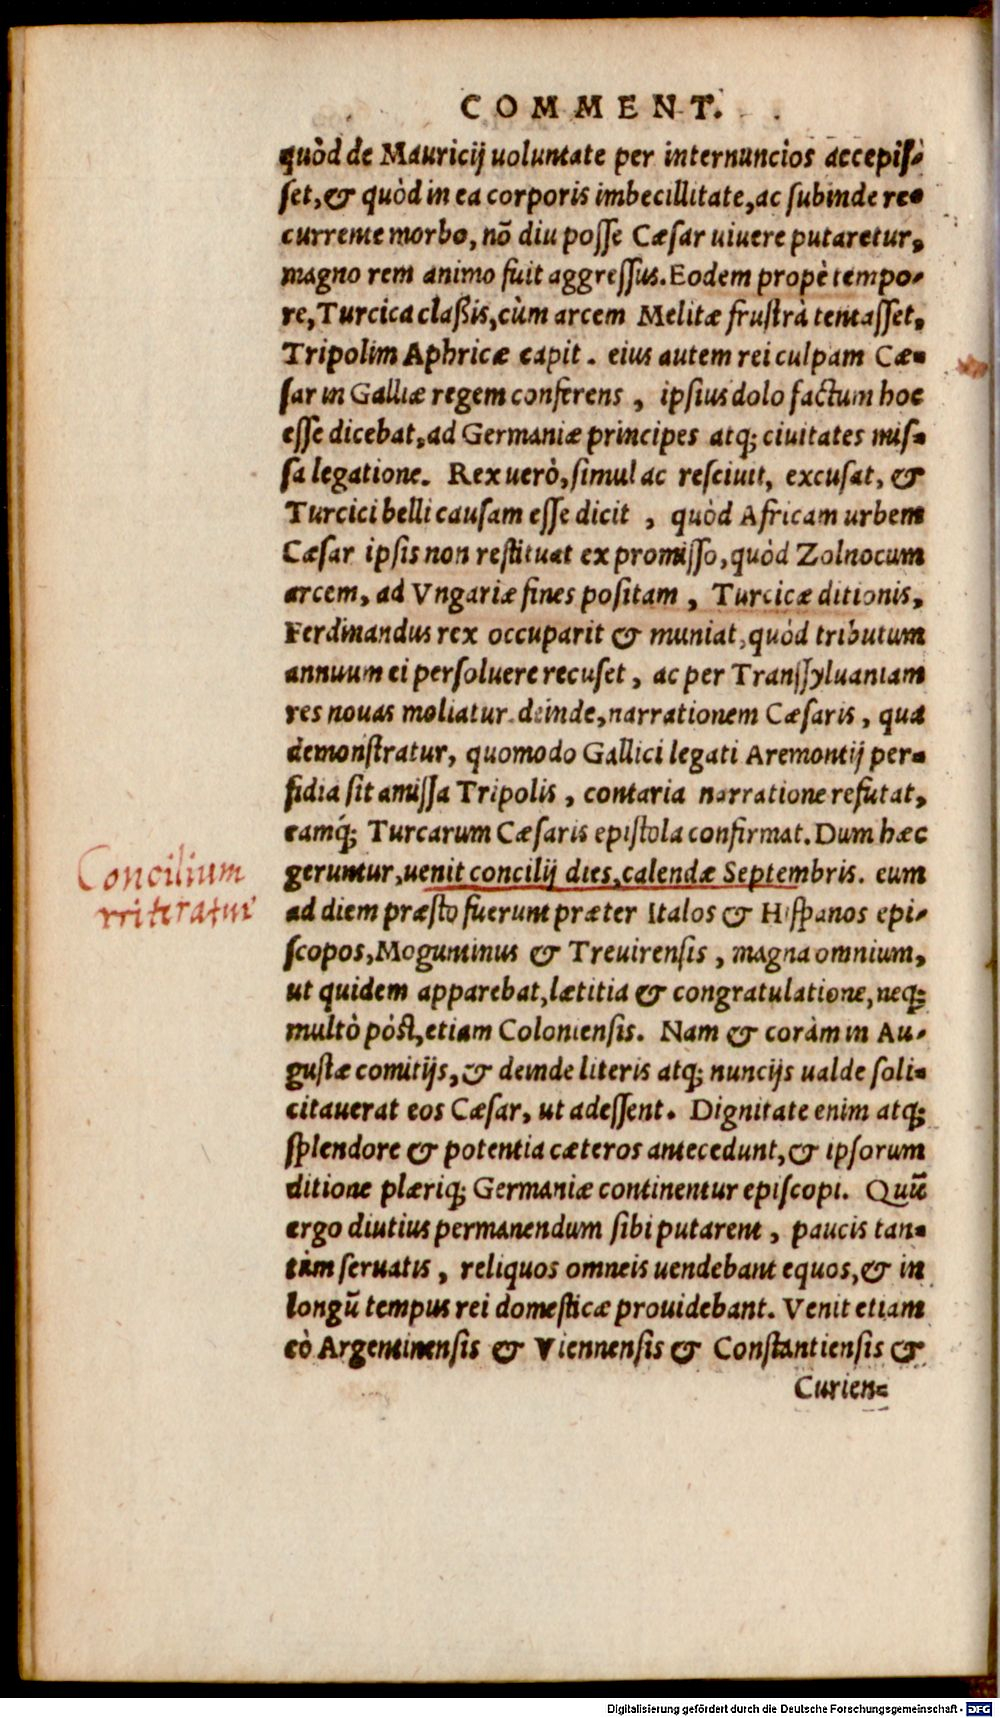 COMMENT.
quòd de Mauricij uoluntate per internuncios accepis-
set, & quòd in ea corporis imbecillitate, ac subinde re-
currente morbo, nõ diu posse Cæsar uiuere putaretur,
magno rem animo fuit aggressus. Eodem propè tempo-
re, Turcica claßis, cùm arcem Melitæ frustrà tentasset,
Tripolim Aphricæ capit. eius autem rei culpam Cæ-
sar in Galliæ regem conferens, ipsius dolo factum hoc
esse dicebat, ad Germaniæ principes atq; ciuitates mis-
sa legatione. Rex uerò, simul ac resciuit, excusat, &
Turcici belli causam esse dicit, quòd Africam urbem
Cæsar ipsis non restituat ex promisso, quòd Zolnocum
arcem, ad Vngariæ fines positam, Turcicæ ditionis,
Ferdinandus rex occuparit & muniat, quòd tributum
annuum ei persoluere recuset, ac per Transsyluaniam
res nouas moliatur. deinde, narrationem Cæsaris, qua
demonstratur, quomodo Gallici legati Aremontij per-
fidia sit amissa Tripolis, contaria narratione refutat,
eamq́; Turcarum Cæsaris epistola confirmat. Dum hæc
geruntur, uenit concilij dies, calendæ Septembris. eum
Concilium
ad diem præsto fuerunt præter Italos & Hispanos epi-
scopos, Moguntinus & Treuirensis, magna omnium,
ut quidem apparebat, lætitia & congratulatione, neq;
multò pòst, etiam Coloniensis. Nam & coràm in Au-
gustæ comitijs, & deinde literis atq; nuncijs ualde soli-
citauerat eos Cæsar, ut adessent. Dignitate enim atq;
splendore & potentia cæteros antecedunt, & ipsorum
ditione plæriq; Germaniæ continentur episcopi. Quũ
ergo diutius permanendum sibi putarent, paucis tan-
tùm seruatis, reliquos omneis uendebant equos, & in
longũ tempus rei domesticæ prouidebant. Venit etiam
eò Argentinensis & Viennensis & Constantiensis &
Curien-
Digitalisierung gefördert durch die Deutsche Forschungsgemeinschaft - DFG